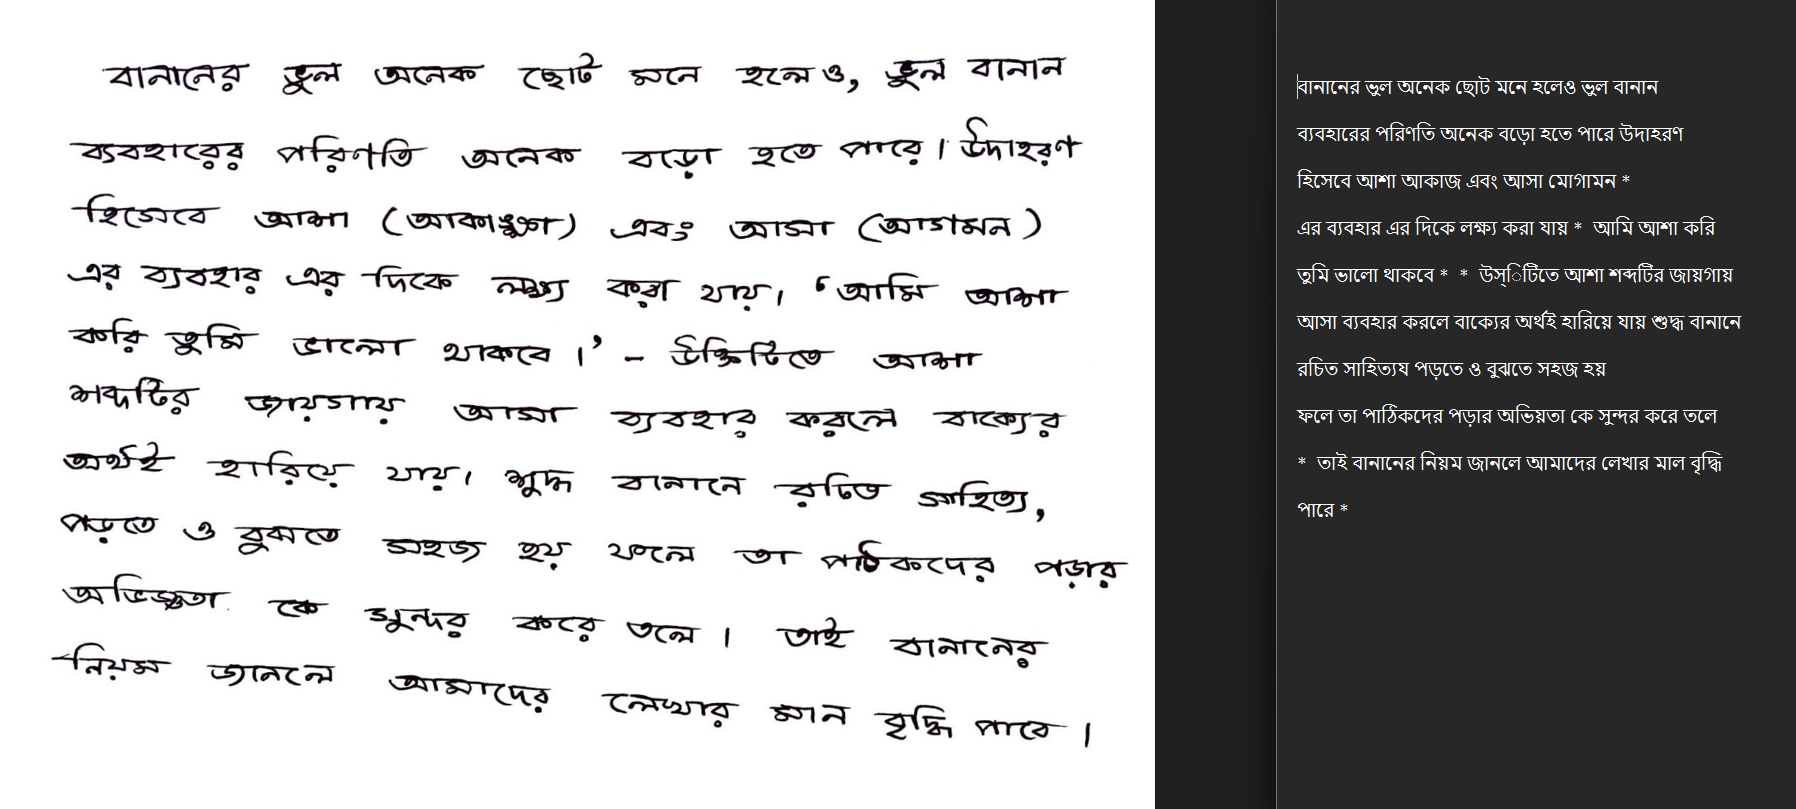 বানানের ভুল অনেক ছোট মনে হলেও, ভুল বানান
ব্যবহারের পরিণতি অনেক বড়ো হতে পারে। উদাহরণ
হিসেবে আশা (আকাঙ্ক্ষা) এবং আসা (আগমন)
এর ব্যবহার এর দিকে লক্ষ্য করা যায়। ‘আমি আশা
করি তুমি ভালো থাকবে।’ – উক্তিটিতে আশা
শব্দটির জায়গায় আসা ব্যবহার করলে বাক্যের
অর্থই হারিয়ে যায়। শুদ্ধ বানানে রচিত সাহিত্য,
পড়তে ও বুঝতে সহজ হয় ফলে তা পাঠিকদের পড়ার
অভিজ্ঞতা কে সুন্দর করে তলে। তাই বানানের
নিয়ম জানলে আমাদের লেখার মান বৃদ্ধি পাবে।
বানানের ভুল অনেক ছোট মনে হলেও ভুল বানান
ব্যবহারের পরিণতি অনেক বড়ো হতে পারে উদাহরণ
হিসেবে আশা আকাজ এবং আসা মোগামন *
এর ব্যবহার এর দিকে লক্ষ্য করা যায় * আমি আশা করি
তুমি ভালো থাকবে * * উস্িটিতে আশা শব্দটির জায়গায়
আসা ব্যবহার করলে বাক্যের অর্থই হারিয়ে যায় শুদ্ধ বানানে
রচিত সাহিত্যয পড়তে ও বুঝতে সহজ হয়
ফলে তা পাঠিকদের পড়ার অভিয়তা কে সুন্দর করে তলে
* তাই বানানের নিয়ম জানলে আমাদের লেখার মাল বৃদ্ধি
পারে *